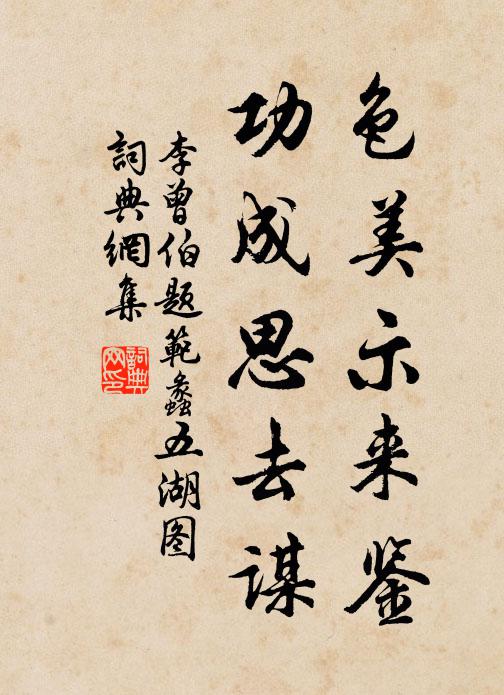 色美示来鉴
功成思去谋
李曾伯题範蠡五湖图
詞典網集
詞典网印